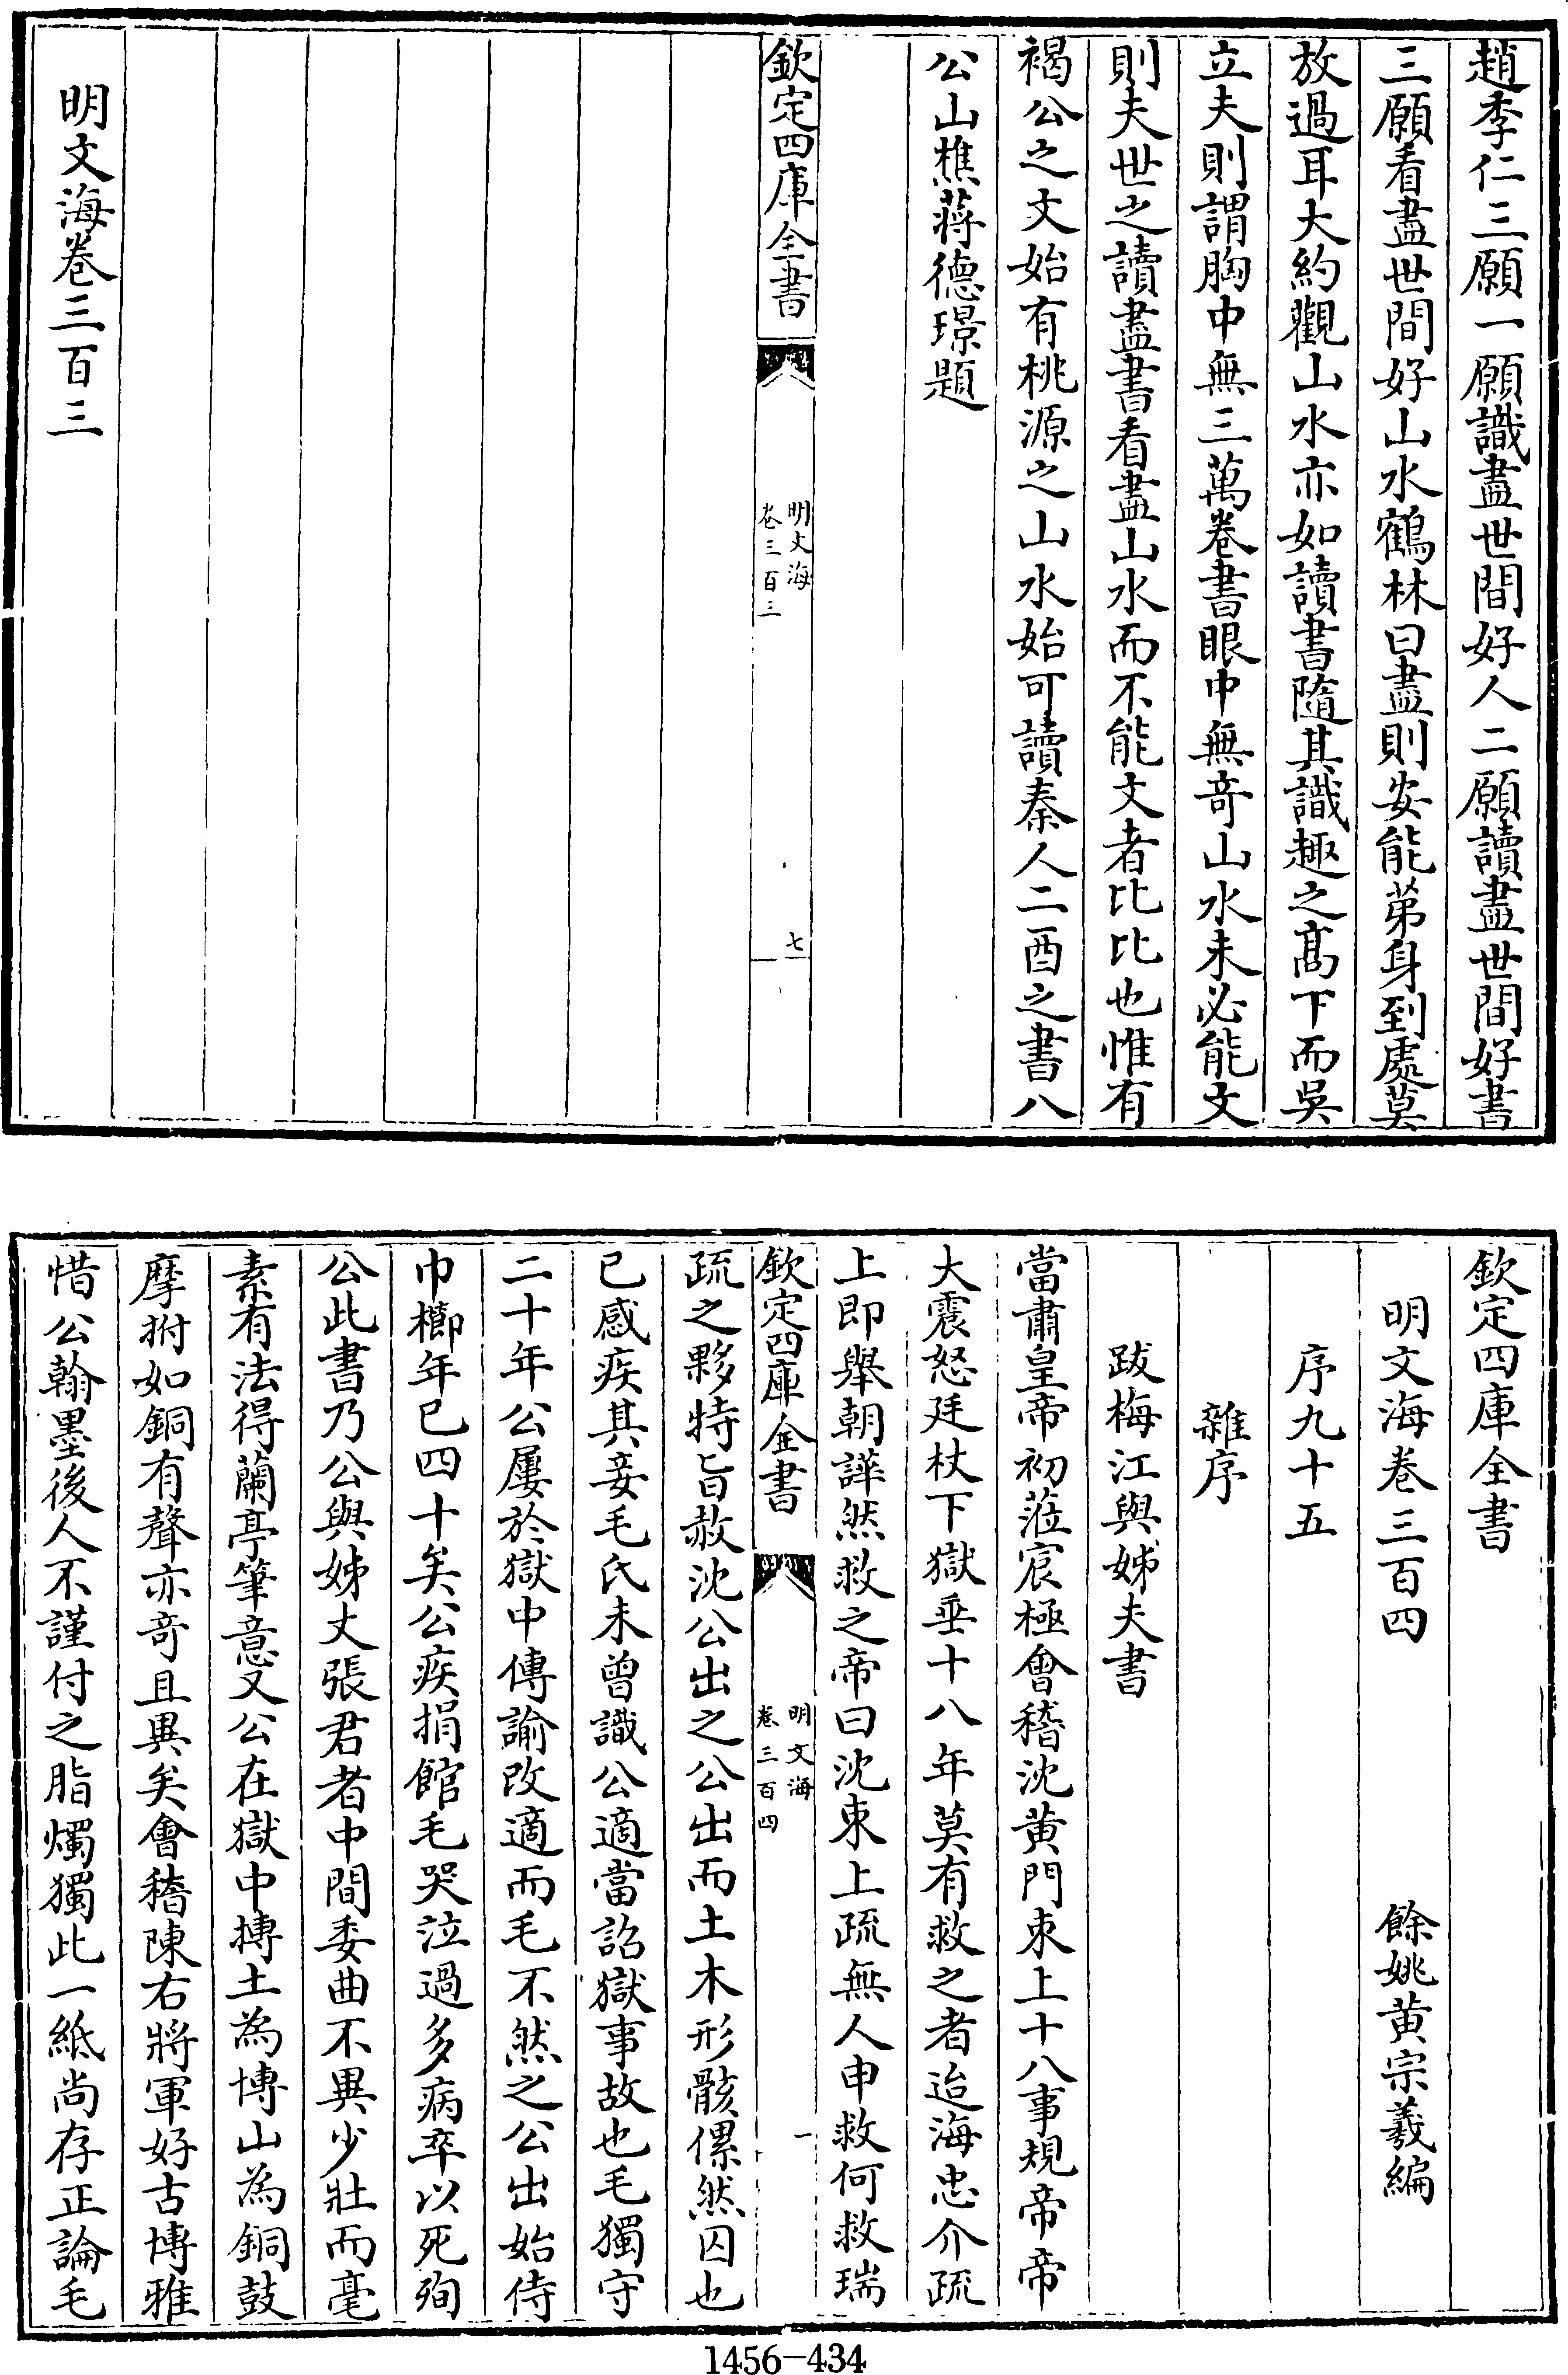 趙季仁三願一願識盡世間好人二願讀盡世間好書
三願看盡世間好山水鶴林曰盡則安能苐身到處莫
放過耳大約觀山水亦如讀書隨其識趣之髙下而吳
立夫則謂胸中無三萬卷書眼中無竒山水未必能文
則夫世之讀盡書看盡山水而不能文者比比也惟有
褐公之文始有桃源之山水始可讀秦人二酉之書八
公山樵蔣德璟題
欽定四庫全書
明文海
卷三百三
七
明文海卷三百三
欽定四庫全書
明文海卷三百四
餘姚黄宗羲編
序九十五
雜序
跋梅江與姊夫書
當肅皇帝初蒞宸極會稽沈黄門束上十八事規帝帝
大震怒廷杖下獄垂十八年莫有救之者迨海忠介疏
上即舉朝譁然救之帝曰沈束上疏無人申救何救瑞
欽定四庫全書
明文海
卷三百四
一
疏之夥特旨赦沈公出之公出而土木形骸傫然囚也
已感疾其妾毛氏未曾識公適當詔獄事故也毛獨守
二十年公屢於獄中傳諭改適而毛不然之公出始侍
巾櫛年已四十矣公疾捐館毛哭泣過多病卒以死殉
公此書乃公與姊丈張君者中間委曲不異少壯而毫
素有法得蘭亭筆意又公在獄中摶土為博山為銅鼓
摩拊如銅有聲亦竒且異矣會稽陳右將軍好古博雅
惜公翰墨後人不謹付之脂燭獨此一紙尚存正論毛
1456-434